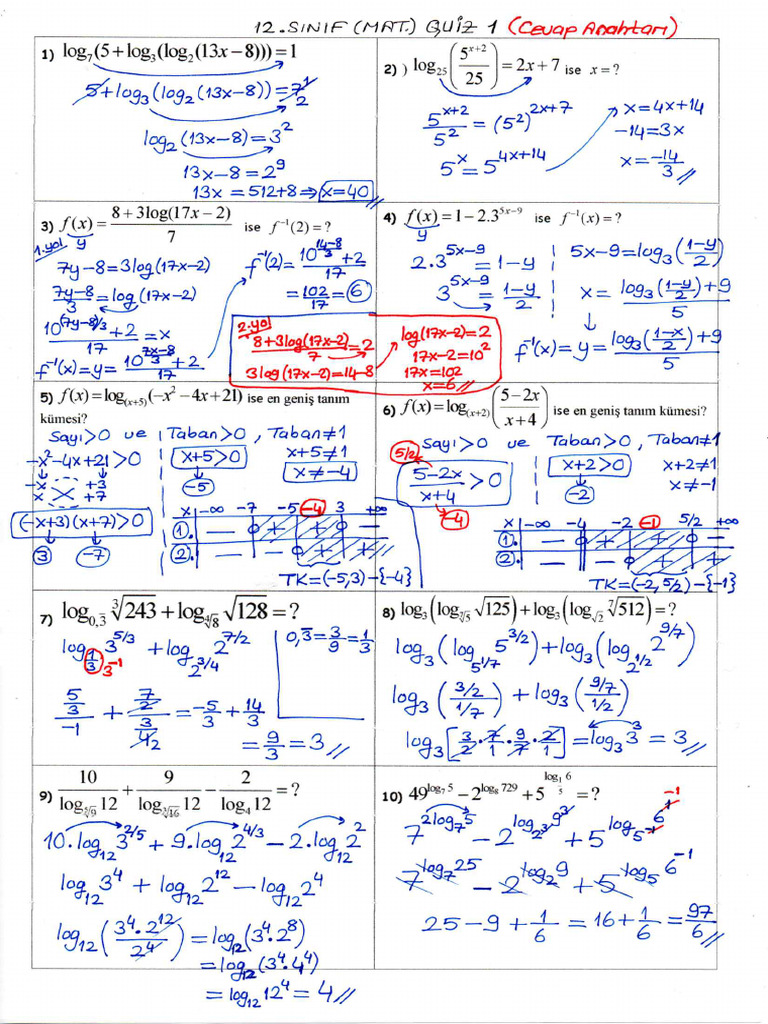 12.SINIF (MAT.) QUIZ 1 (Cevap Anahtarı)
1) log₇(5+log₃(log₂(13x−8)))=1
5+log₃(log₂(13x-8))=7¹
2
log₂(13x-8)=3²
13x-8=2⁹
13x=512+8⇒x=40
2) ) log₂₅(5^(x+2)/25)=2x+7 ise x=?
5^(x+2)/5²=(5²)^(2x+7)
5^x=5^(4x+14)
x=4x+14
-14=3x
x=-14/3 //
3) f(x)=(8+3log(17x−2))/7 ise f⁻¹(2)=?
y
1.yol
7y-8=3log(17x-2)
(7y-8)/3=log(17x-2)
(10^((7y-8)/3)+2)/17=x
f⁻¹(x)=y=(10^((7x-8)/3)+2)/17
f⁻¹(2)=(10^((14-8)/3)+2)/17
=102/17=6
2.yol
(8+3log(17x-2))/7=2
3log(17x-2)=14-8
log(17x-2)=2
17x-2=10²
17x=102
x=6 //
4) f(x)=1−2.3^(5x−9) ise f⁻¹(x)=?
y
2.3^(5x-9)=1-y
3^(5x-9)=(1-y)/2
5x-9=log₃((1-y)/2)
x=(log₃((1-y)/2)+9)/5
f⁻¹(x)=y=(log₃((1-x)/2)+9)/5
5) f(x)=log₍ₓ₊₅₎(−x²−4x+21) ise en geniş tanım
kümesi?
Sayı>0 ve Taban>0, Taban≠1
-x²-4x+21>0
-x +3
x +7
(-x+3)(x+7)>0
3 -7
x+5>0
-5
x+5≠1
x≠-4
x -∞ -7 -5 -4 3 +∞
1. — 0 + + 0 —
2. — — 0 + +
TK=(-5,3)-{-4}
6) f(x)=log₍ₓ₊₂₎((5−2x)/(x+4)) ise en geniş tanım kümesi?
Sayı>0 ve Taban>0, Taban≠1
5/2
(5-2x)/(x+4)>0
-4
x+2>0
-2
x+2≠1
x≠-1
x -∞ -4 -2 -1 5/2 +∞
1. — 0 + + 0 —
2. — — 0 + +
TK=(-2,5/2)-{-1}
7) log_(0,3̅) ∛243+log_(⁴√8) √128=?
log_(1/3) 3^(5/3)+log_(2^(3/4)) 2^(7/2)
3⁻¹
0,3̅=3/9=1/3
(5/3)/(-1)+(7/2)/(3/4)=-5/3+14/3
=9/3=3 //
8) log₃(log_(⁷√5) √125)+log₃(log_(√2) ⁷√512)=?
log₃(log_(5^(1/7)) 5^(3/2))+log₃(log_(2^(1/2)) 2^(9/7))
log₃((3/2)/(1/7))+log₃((9/7)/(1/2))
log₃[3/2·7/1·9/7·2/1]=log₃3³=3 //
9) 10/(log_(⁵√9) 12)+9/(log_(∛16) 12)−2/(log₄12)=?
10.log₁₂3^(2/5)+9.log₁₂2^(4/3)-2.log₁₂2²
log₁₂3⁴+log₁₂2¹²-log₁₂2⁴
log₁₂(3⁴.2¹²/2⁴)=log₁₂(3⁴.2⁸)
=log₁₂(3⁴.4⁴)
=log₁₂12⁴=4 //
10) 49^(log₇5)−2^(log₈729)+5^(log_(1/5) 6)=?
7^(2log₇5)-2^(log_(2³) 9³)+5^(log_(5⁻¹) 6¹) -1
7^(log₇25)-2^(log₂9)+5^(log₅6⁻¹)
25-9+1/6=16+1/6=97/6 //